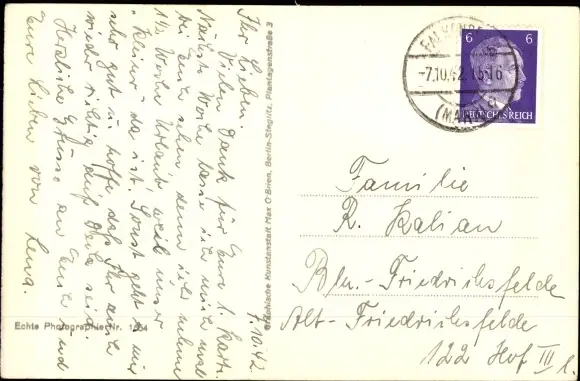 7.10.42.
Ihr Lieben.
Vielen Dank für Eure l. Karte.
Nächste Woche lasse ich mich mal
bei Euch sehn, denn ich nehme
1½ Woche Urlaub, weil unser
"Kleiner" da ist. Sonst geht es mir
sehr gut u. hoffe daß Ihr auch
wieder richtig auf Deck seid.
Herzliche Grüsse an Euch und
Eure Lieben von Lena.
Echte Photographie Nr. 1264
Graphische Kunstanstalt Max O'Brien, Berlin-Steglitz, Plantagenstraße 3
6 6
DEUTSCHES REICH
-7.10.42.15-16
(MARK)
Familie
R. Kalian
Bln.-Friedrichsfelde
Alt-Friedrichsfelde
122 Hof III l.